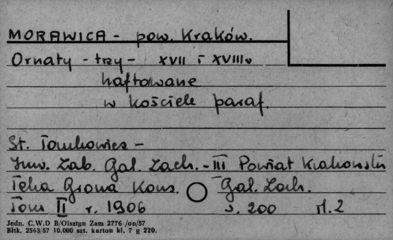 MORAWICA - pow. Kraków.
Ornaty - trzy - XVII i XVIII w
haftowane
w kościele paraf.
St. Tomkowicz -
Inw. Zab. Gal. Zach. - III Powiat Krakowski
Teka Grona Kons. Gal. Zach.
Tom II r. 1906 s. 200 fl. 2
Jedn. C.W.D B/Olsztyn Zam 2776 /on/57
Bltk. 2563/57 10.000 szt. karton kl. 7 g 220.